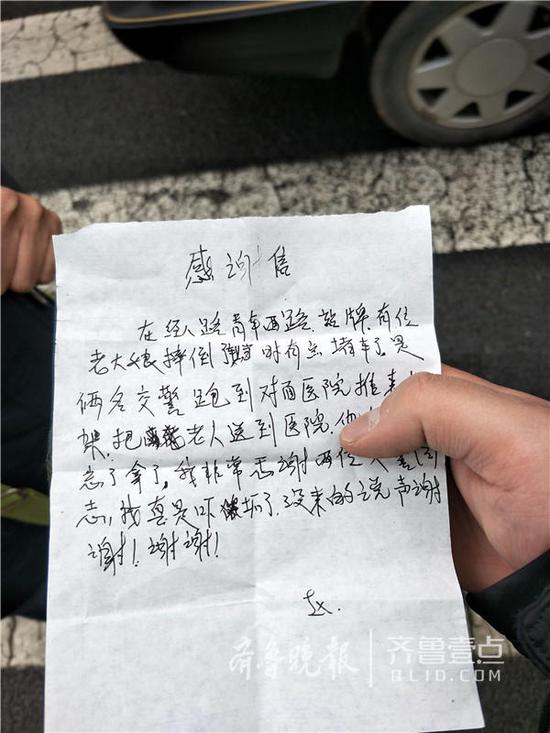 感谢信
在经八路青年西路.站牌.有位
老大娘摔倒 当时有点堵车了是
俩名交警跑到对面医院推来
架.把 老人送到医院.
忘了拿了.我非常感谢两位
志,我真是吓坏了.没来的说声谢
谢!谢谢!
赵.
齐鲁晚报 齐鲁壹点
QLID.COM